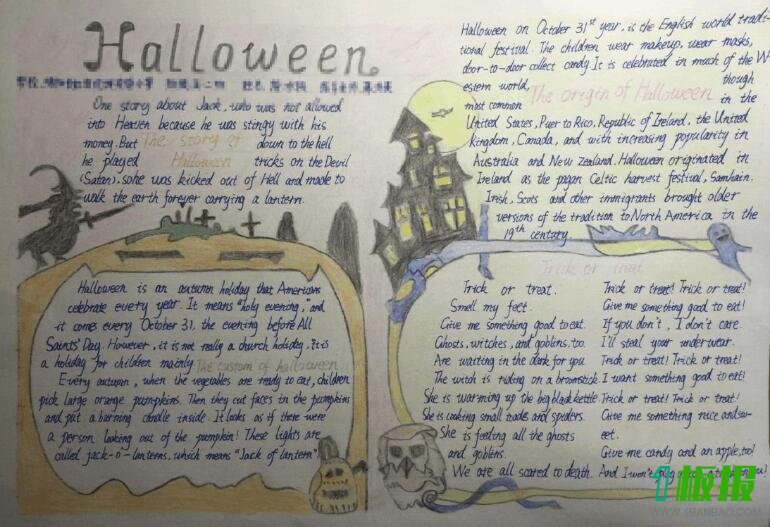 Halloween
One story about Jack, who was not allowed
into Heaven because he was stingy with his
money. But
The story of
Halloween
down to the hell
he played
tricks on the Devil
(Satan), so he was kicked out of Hell and made to
walk the earth forever carrying a lantern.
Halloween on October 31st year, is the English world tradi-
tional festival. The children wear makeup, wear masks,
door-to-door collect candy. It is celebrated in much of the W-
estern world,
though
most common
The origin of Halloween
in the
United States, Puer to Rico, Republic of Ireland, the United
Kingdom, Canada, and with increasing popularity in
Australia and New Zealand. Halloween originated in
Ireland as the pagan Celtic harvest festival, Samhain.
Irish, Scots and other immigrants brought older
versions of the tradition to North America in the
19th century.
Halloween is an autumn holiday that Americans
celebrate every year. It means "holy evening," and
it comes every October 31, the evening before All
Saints' Day. However, it is not really a church holiday. It is
a holiday for children mainly
The custom of halloween
Every autumn, when the vegetables are ready to eat, children
pick large orange pumpkins. Then they cut faces in the pumpkins
and put a burning candle inside. It looks as if there were
a person looking out of the pumpkin! These lights are
called jack-o'-lanterns, which means "Jack of lantern".
Trick or treat
Trick or treat.
Smell my feet.
Give me something good to eat.
Ghosts, witches, and goblins, too.
Are waiting in the dark for you.
The witch is riding on a broomstick.
She is warming up the big black kettle
She is cooking small toads and spiders.
She is feeding all the ghosts
and goblins.
We are all scared to death.
Trick or treat! Trick or treat!
Give me something good to eat!
If you don't, I don't care.
I'll steal your underwear.
Trick or treat! Trick or treat!
I want something good to eat!
Trick or treat! Trick or treat!
Give me something nice and sw-
eet.
Give me candy and an apple, too!
And I won't
板报
WWW.1BANBAO.COM